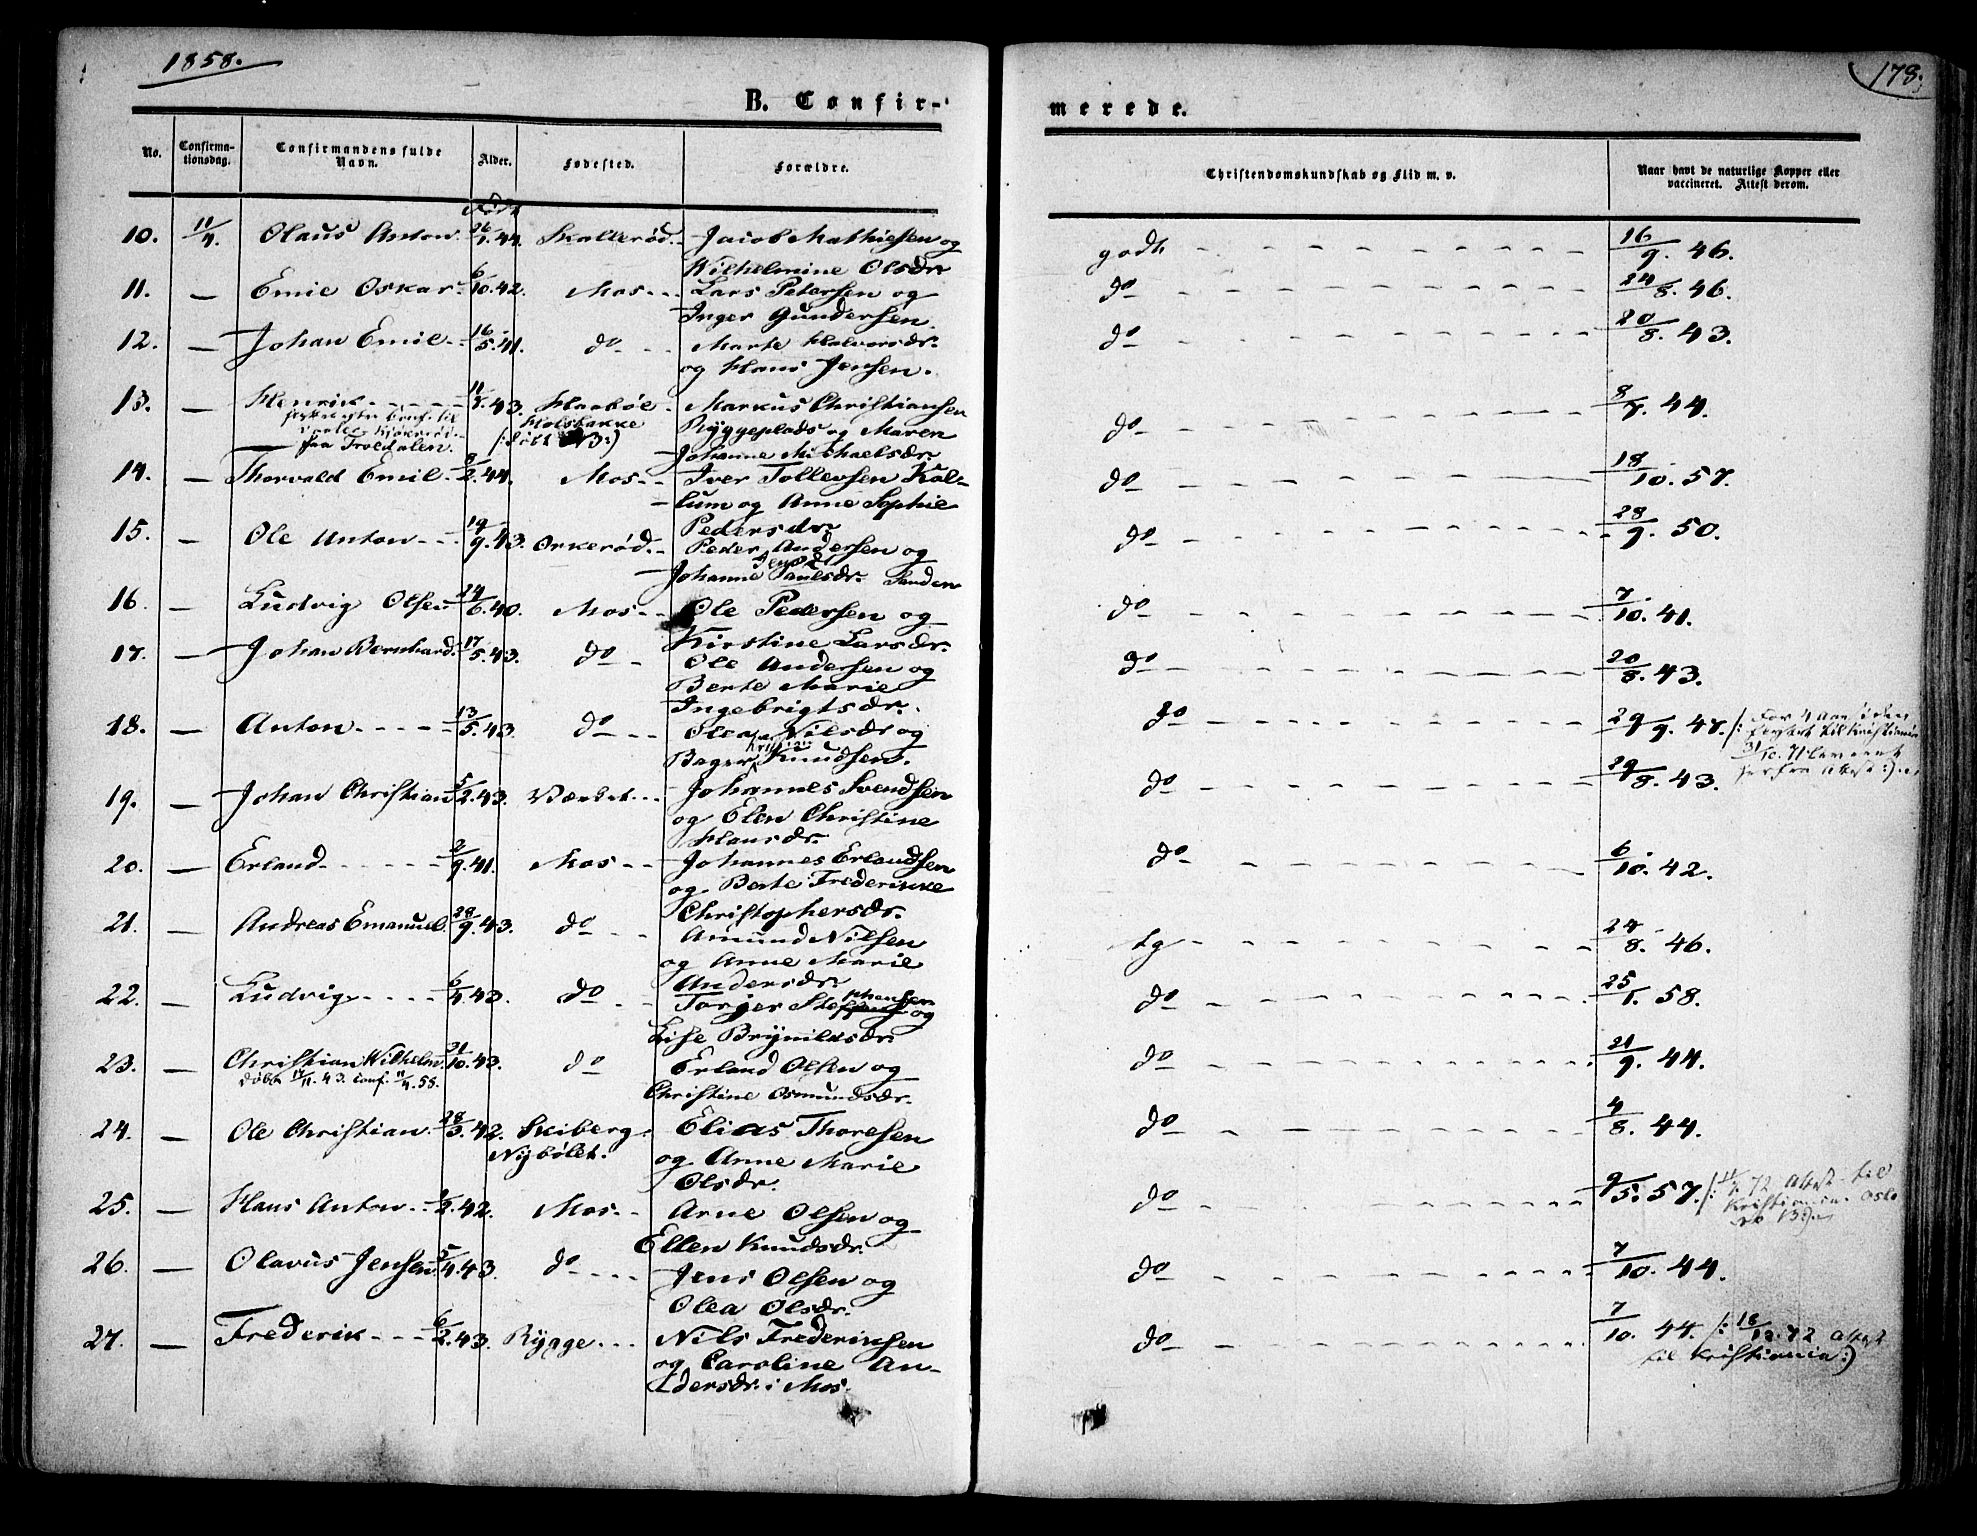 1858.
178.
B. Confir-
merede.
No.
Confirma-
tionsdag.
Confirmandens fulde
Navn.
Alder.
Fødested.
Forældre.
Christendomskundskab og Flid m. v.
Naar havt de naturlige Kopper eller
vaccineret. Attest derom.
10. 11/4. Olaus Anton. 26/1.44. Skallerød. Jacob Mathiesen og godt 16/9. 46.
Wilhelmine Olsdr.
11. — Emil Oskar 6/10.42. Mos. Lars Petersen og do 24/8. 46.
Inger Gundersen.
12. — Johan Emil 16/5.41. do Marte Halvorsdr. do 20/8. 43.
og Hans Jensen.
13. — Henrik 43. Markus Christiansen do 8/7. 44.
Ryggeplads og Maren
fra Troldalen.
Johanne Michaelsdr.
14. — Thorvald Emil 8/2.44. Mos Iver Tollevsen Kal- do 18/10. 57.
lum og Anne Sophie
Pedersdr.
15. — Ole Anton 19/9.43. Orkerød. Peder Andersen og do 28/9. 50.
Johanne Paulsdr. Sanden
16. — Ludvig Olsen 24/6.40. Mos Ole Pedersen og do 7/10. 41.
Kirstine Larsdr.
17. — Johan Bernhard. 17/5.43. do Ole Andersen og do 20/8. 43.
Berte Marie
Ingebrigtsdr.
18. — Anton 13/5.43. do Olea Nilsdr og do 29/9. 47. /: For 4 Aar siden
flyttet til Kristiania
Bager Knudsen.
31/10. 71
herfra Attest:)
19. — Johan Christian 5/2.43. Værket Johannes Svendsen do 29/8. 43.
og Elen Christine
Hansdr.
20. — Erland 2/9.41. Mos Johannes Erlandsen do 6/10. 42.
og Berte Frederikke
Christophersdr.
21. — Andreas Emanuel. 28/9.43. do Amund Nilsen tg 24/8. 46.
og Anne Marie
Andersdr.
22. — Ludvig 6/4.43. do Torjer Stephansen og do 25/1. 58.
Lise Brynildsdr.
23. — Christian Wilhelm. 21/10.43. do Erland Olsen og do 21/9. 44.
døbt 12/11. 43. conf. 11/4. 58.
Christine Osmundsdr.
24. — Ole Christian 28/3.42. Skiberg Elias Thoresen do 4/8. 44.
Nybølet. og Anne Marie
Olsdr.
25. — Hans Anton 2.42. Mos Arne Olsen og do 9/5. 57. /: 72 Attest til
Kristiania Oslo
Ellen Knudsdr.
26. — Olavus Jensen 5/4.43. do Jens Olsen og do 7/10. 44.
Olea Olsdr.
27. — Frederik 6/2.43. Rygge Nils Frederiksen do 7/10. 44. /: 18/12.72 Attest
til Kristiania:)
og Caroline An-
dersdr. i Mos.